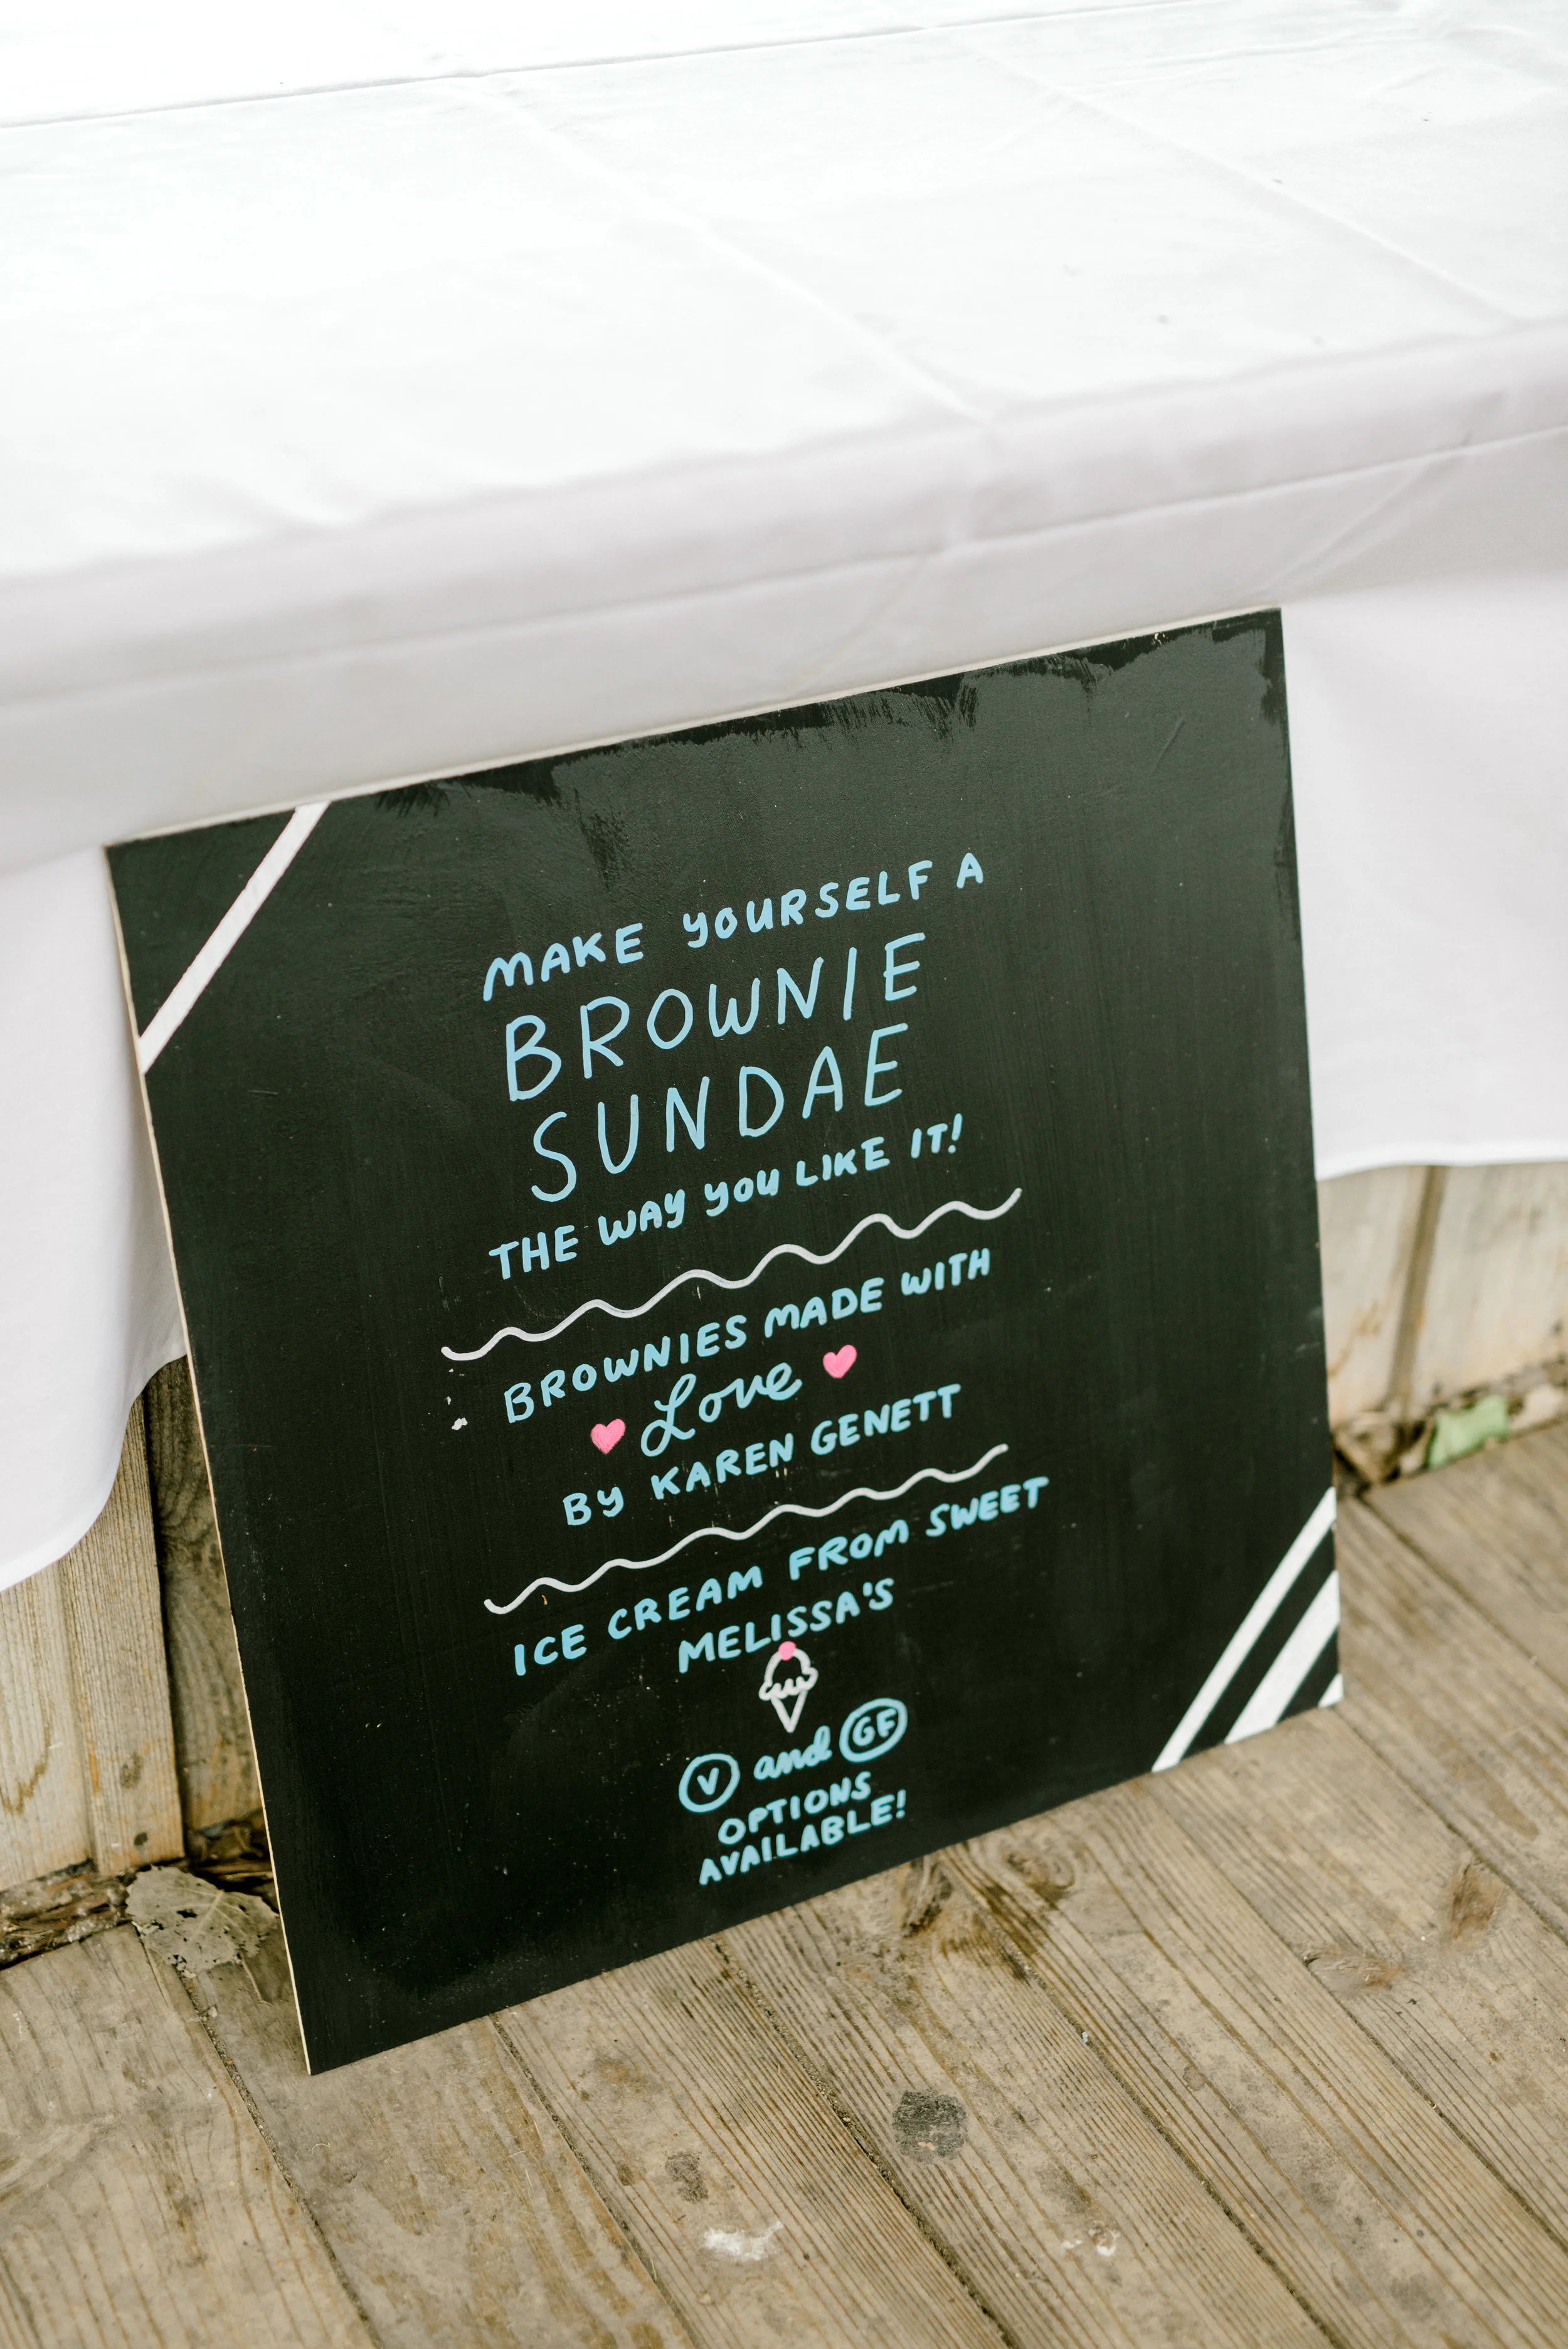 MAKE YOURSELF A
BROWNIE
SUNDAE
THE WAY YOU LIKE IT!
BROWNIES MADE WITH
Love
BY KAREN GENETT
ICE CREAM FROM SWEET
MELISSA'S
V and GF
OPTIONS
AVAILABLE!